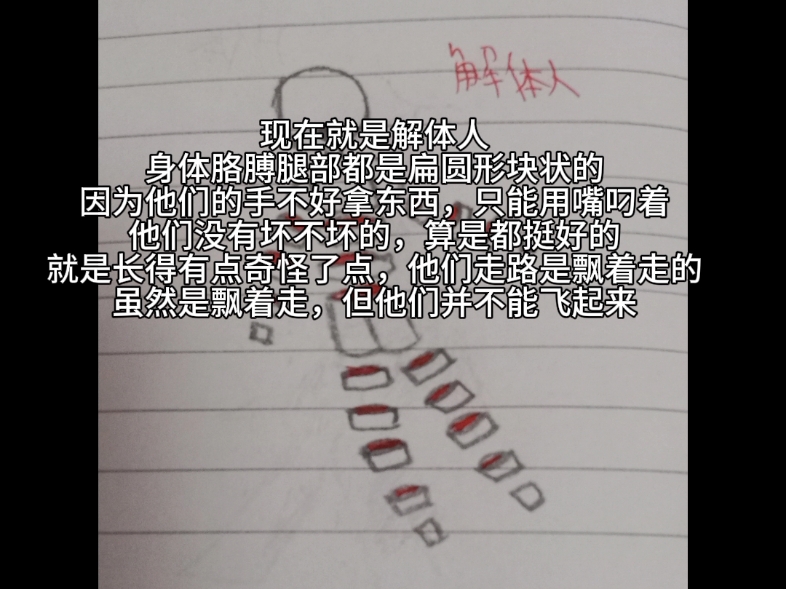 解体人
现在就是解体人
身体胳膊腿部都是扁圆形块状的
因为他们的手不好拿东西，只能用嘴叼着
他们没有坏不坏的，算是都挺好的
就是长得有点奇怪了点，他们走路是飘着走的
虽然是飘着走，但他们并不能飞起来